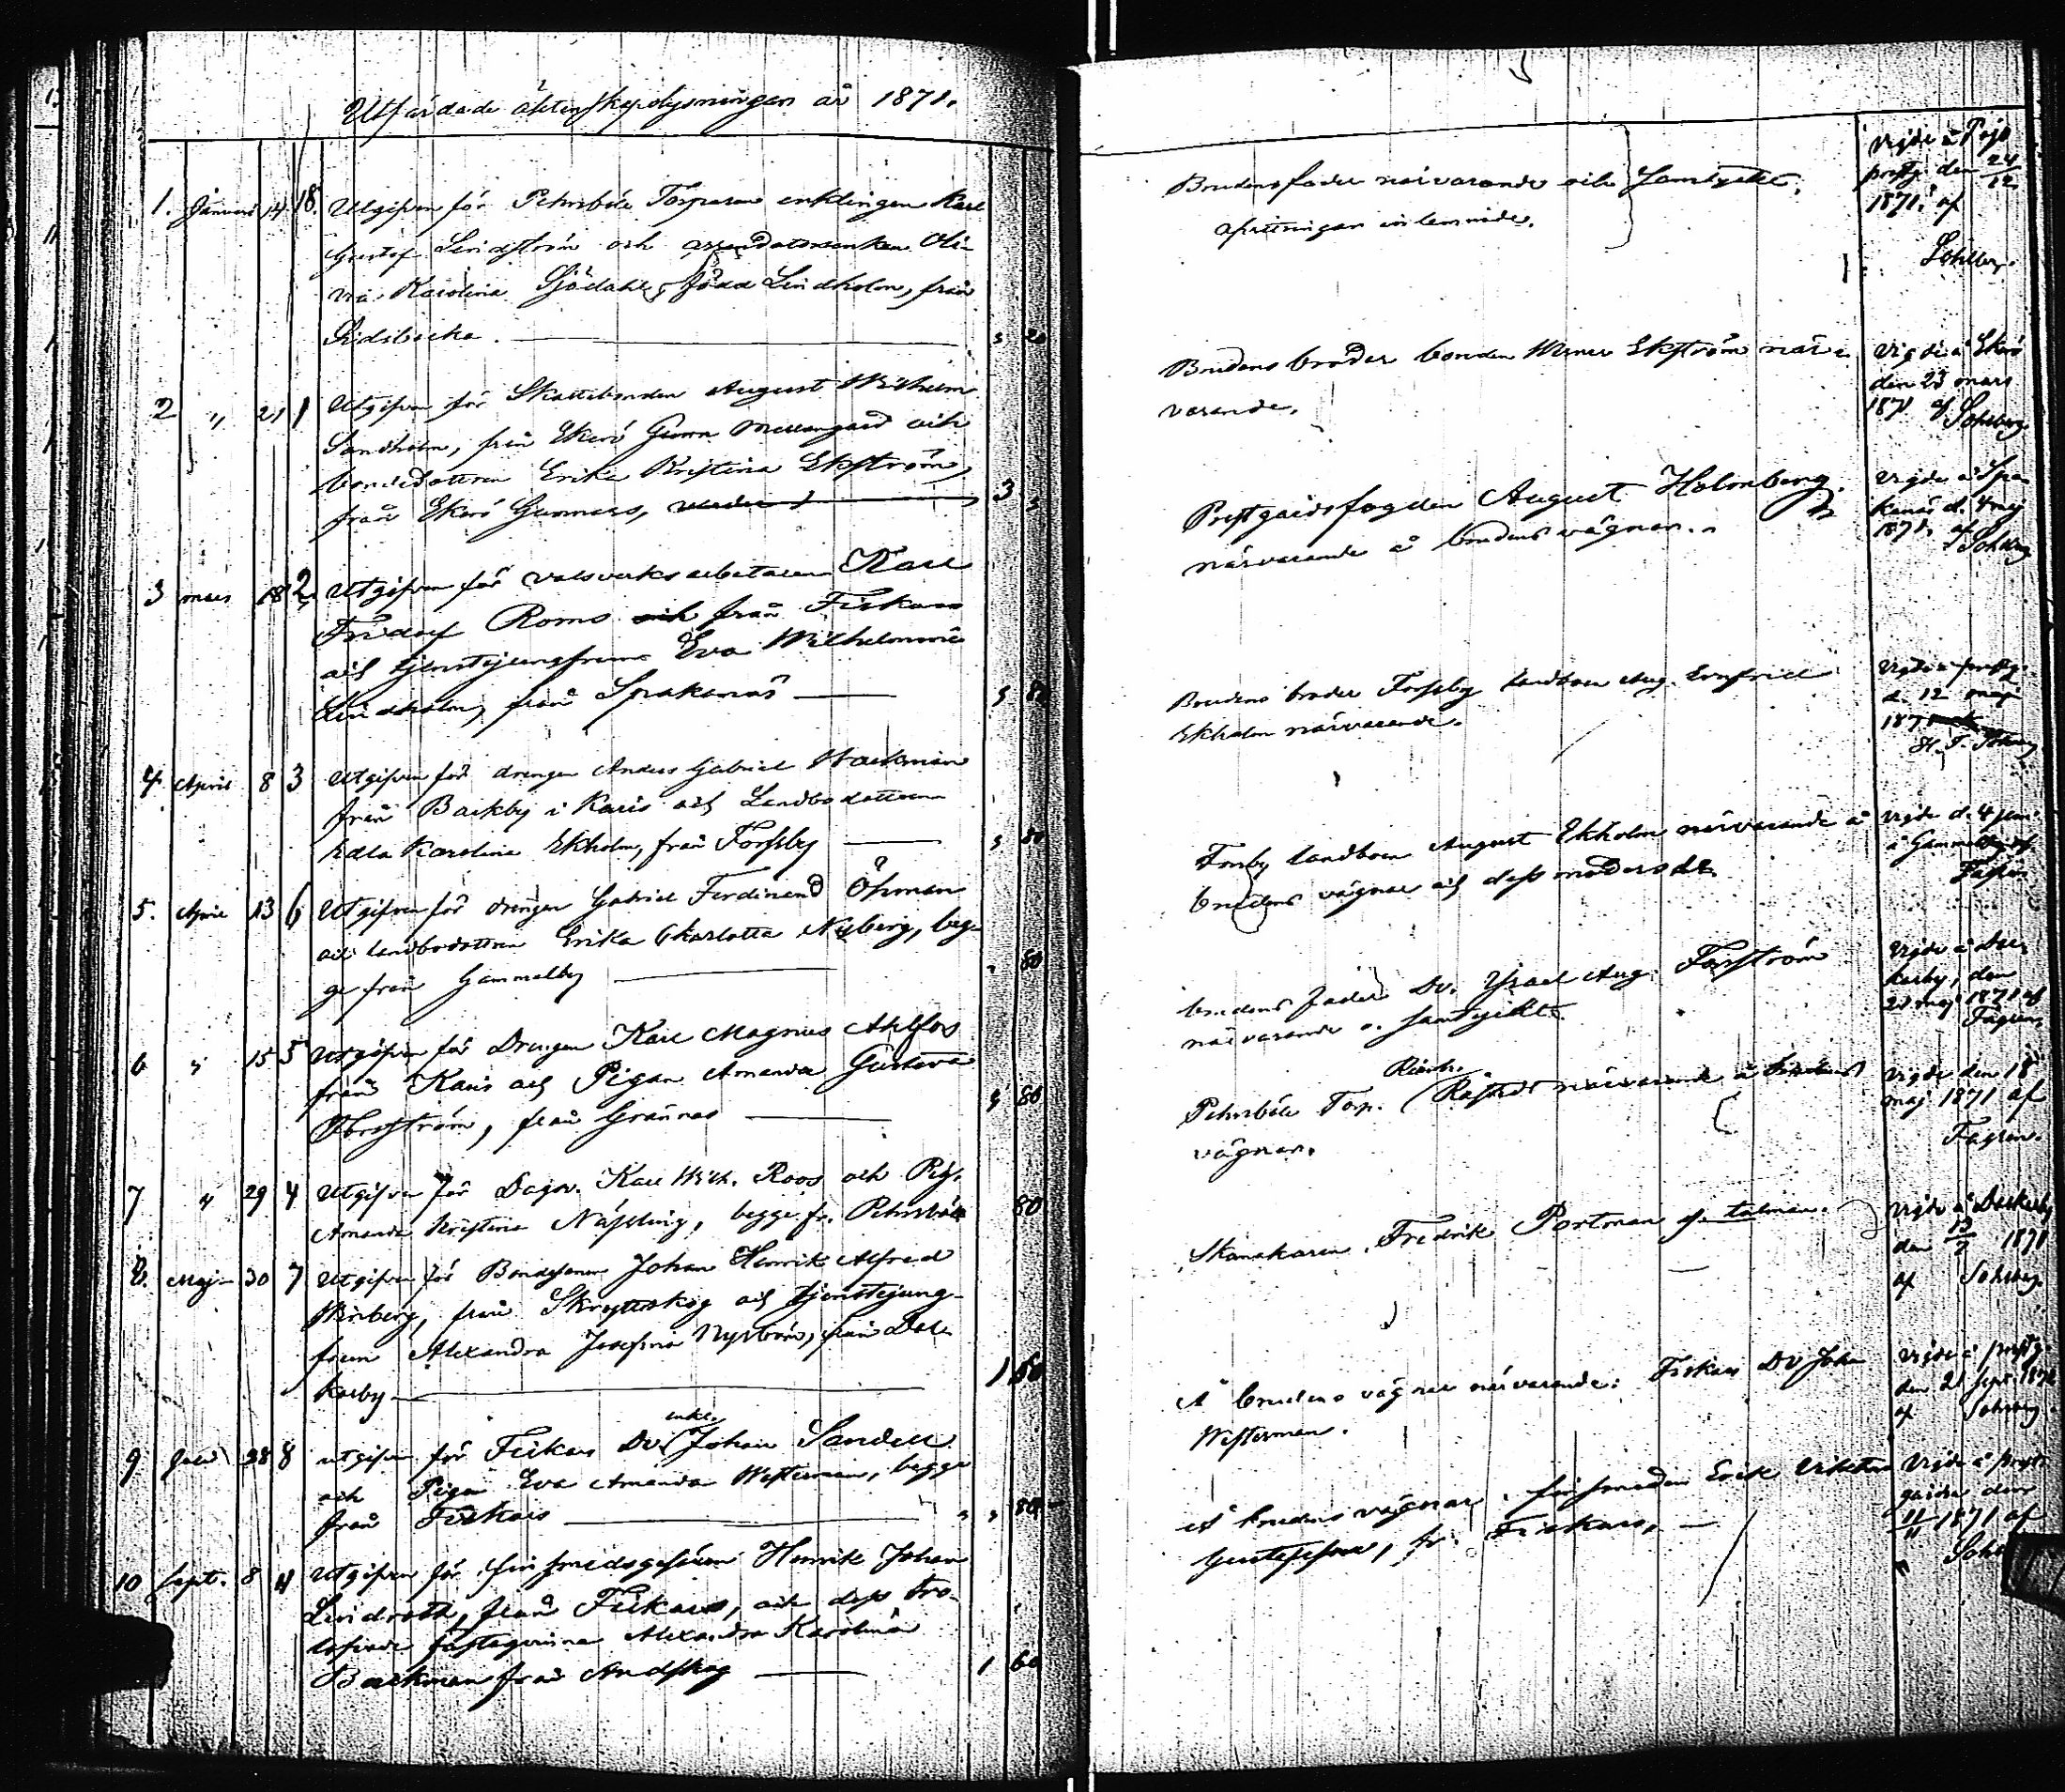 Utfärdade äktenskapslysningar år 1871.
1. Januari 14 18. Utgifven för Pehrsböle Torparen enklingen Karl
Gustaf Lindström och arrendatorsenkan Oli-
via Karolina Sjödahl, född Lindholm, från
20
2 " 21 1 Utgifven för Skattebonden August Wilhelm
Sandholm, från Ekerö Gunnars Mellangård och
bondedottren Erika Kristina Ekström,
från Ekerö Gunnars, 3
3 mars 18 2 Utgifven för valsverksarbetaren Karl
Fridolf Roms och från Fiskars
och tjenstejungfrun Eva Wilhelmina
Lindholm, från Spakanäs 80
4 April 8 3 Utgifven för drengen Anders Gabriel Wackman
från Backby i Karis och Landbodottren
Edla Karolina Ekholm, från Forssby 80
5. April 13 6 Utgifven för drengen Gabriel Ferdinand Öhman
och landbodottren Erika Charlotta Nyberg, beg-
ge från Gammelby 80
6 " 15 5 Utgifven för Drengen Karl Magnus Ahlfors
från Karis och Pigan Amanda Gustava
Forsström, från Grännäs 80
7 " 29 4 Utgifven för Dagsv. Karl Wilh. Roos och Pig.
Amanda Kristina Näsling, begge fr. Pehrsböle 80
8. Maj 30 7 Utgifven för Bondesonen Johan Henrik Alfred
Winberg, från Skrytteskog och tjenstejung-
frun Alexandra Josefina Nyström, från Dal-
karby 1 60
9 Juli 28 8 utgifven för Fiskars Dv. enkl. Johan Sandell
och Pigan Eva Amanda Westerman, begge
från Fiskars 80
10 Sept. 8 4 Utgifven för finsmedsgesällen Henrik Johan
Lindroth, från Fiskars, och dess tro-
lofvade fästeqvinna Alexandra Karolina
Backman från Andskog 1 60
Brudens fader närvarande och samtyckte,
afvittringen inlemnades.
Vigde å Pojo
prestg. den 24/12
1871, af
Sohlberg.
Brudens broder bonden Werner Ekström när-
varande.
Vigde å Ekerö
den 23 mars
1871 af Sohlberg
Prestgårdsfogden August Holmberg
närvarande å brudens vägnar.
Vigde å Spa-
kanäs d. 4 maj
1871, af
Sohlberg
Brudens broder Forssby landboen Aug. Ernfried
Ekholm närvarande.
Vigde å prestg.
d. 12 maj
1871
Forsby landboen August Ekholm närvarande å
brudens vägnar och dess moders
Vigde d. 4 juni
å Gammelby af
Fagrén
brudens fader Dv. Israel Aug. Forsström
närvarande o. samtyckte.
Vigde å Dal-
karby, den
maj 1871 af
Fagrén
Pehrsböle Torp. närvarande å brudens
vägnar.
Vigde den 18
maj 1871 af
Fagrén.
Skamakaren Fredrik Portman
Vigde å Dalkarby
den 13/7 1871
af Sohlberg
Å brudens vägnar närvarande: Fiskars Dv Joh
Westerman.
Vigde å prestg.
den 21 sept. 1871
af Sohlberg
Å brudens vägnar, finsmeden Erik
Gustafsson, fr. Fiskars,
Vigde å prest-
gården den
11/11 1871 af